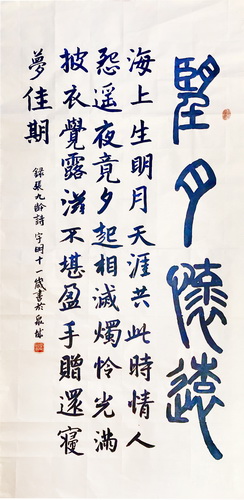 望月懷遠
海上生明月天涯共此時情人
怨遥夜竟夕起相滅燭憐光滿
披衣覺露滋不堪盈手贈還寢
夢佳期
錄張九齡詩 宇明十一歲書於泉